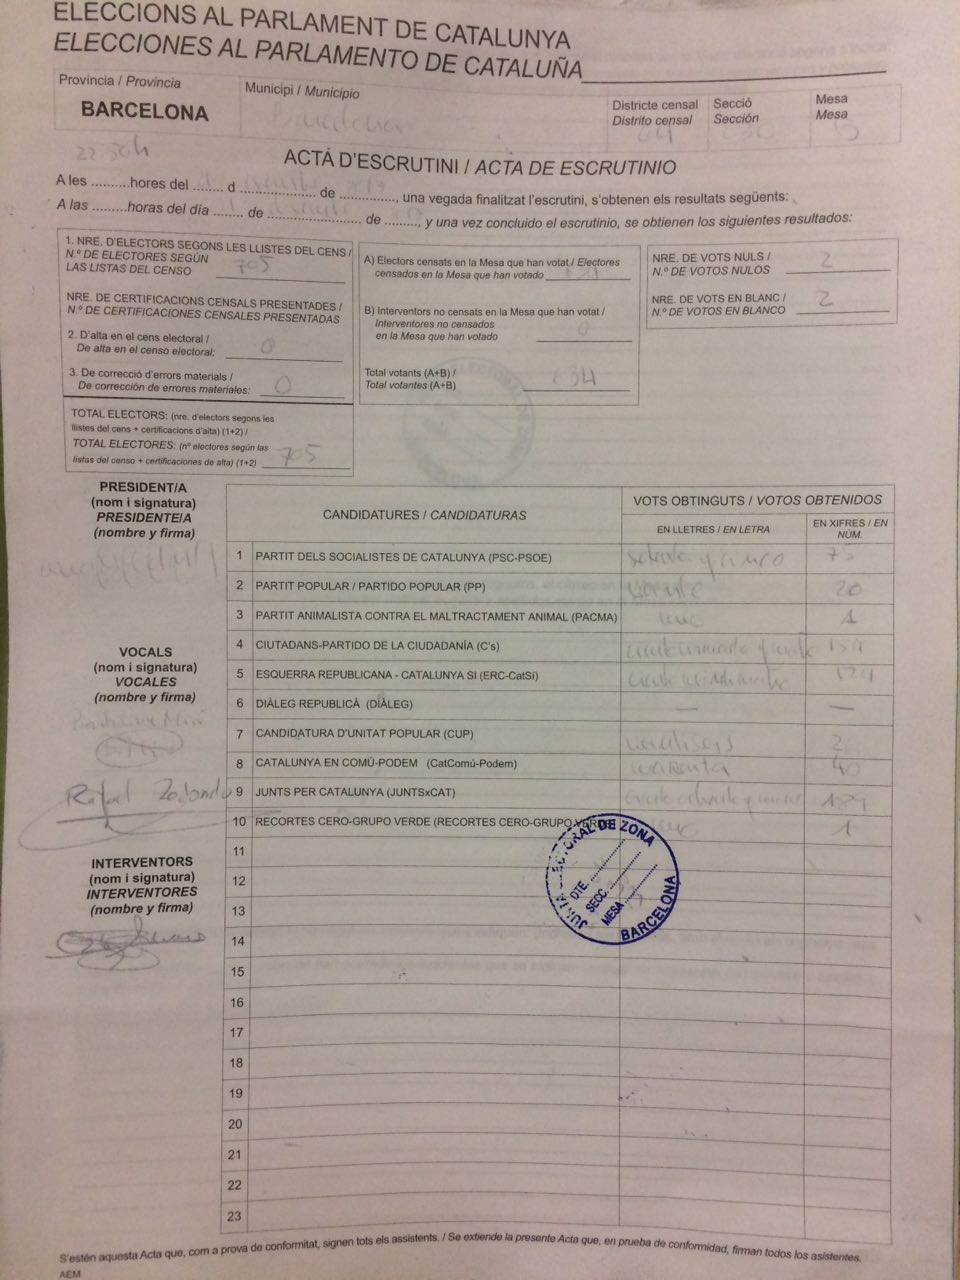 ELECCIONS AL PARLAMENT DE CATALUNYA
ELECCIONES AL PARLAMENTO DE CATALUÑA
Provincia / Provincia
BARCELONA
Municipi / Municipio
Barcelona
Districte censal
Distrito censal
Secció
Sección
Mesa
Mesa
22 30h
ACTA D'ESCRUTINI / ACTA DE ESCRUTINIO
A les ..........hores del ........ d .................... de .............., una vegada finalitzat l'escrutini, s'obtenen els resultats següents:
A las ..........horas del día ........ de ......................... de ........, y una vez concluido el escrutinio, se obtienen los siguientes resultados:
1. NRE. D'ELECTORS SEGONS LES LLISTES DEL CENS /
N.º DE ELECTORES SEGÚN
LAS LISTAS DEL CENSO 705
NRE. DE CERTIFICACIONS CENSALS PRESENTADES /
N.º DE CERTIFICACIONES CENSALES PRESENTADAS
2. D'alta en el cens electoral /
De alta en el censo electoral: 0
3. De correcció d'errors materials /
De corrección de errores materiales: 0
TOTAL ELECTORS: (nre. d'electors segons les
llistes del cens + certificacions d'alta) (1+2) /
TOTAL ELECTORES: (nº electores según las
listas del censo + certificaciones de alta) (1+2) 705
A) Electors censats en la Mesa que han votat / Electores
censados en la Mesa que han votado
B) Interventors no censats en la Mesa que han votat /
Interventores no censados
en la Mesa que han votado 0
Total votants (A+B) /
Total votantes (A+B) 634
NRE. DE VOTS NULS /
N.º DE VOTOS NULOS 2
NRE. DE VOTS EN BLANC /
N.º DE VOTOS EN BLANCO 2
PRESIDENT/A
(nom i signatura)
PRESIDENTE/A
(nombre y firma)
VOCALS
(nom i signatura)
VOCALES
(nombre y firma)
Rafael Redondo
INTERVENTORS
(nom i signatura)
INTERVENTORES
(nombre y firma)
CANDIDATURES / CANDIDATURAS
VOTS OBTINGUTS / VOTOS OBTENIDOS
EN LLETRES / EN LETRA
EN XIFRES / EN
NÚM.
1 PARTIT DELS SOCIALISTES DE CATALUNYA (PSC-PSOE) setenta y cinco 75
2 PARTIT POPULAR / PARTIDO POPULAR (PP) veinte 20
3 PARTIT ANIMALISTA CONTRA EL MALTRACTAMENT ANIMAL (PACMA) uno 1
4 CIUTADANS-PARTIDO DE LA CIUDADANÍA (C's) 154
5 ESQUERRA REPUBLICANA - CATALUNYA SI (ERC-CatSí) 124
6 DIÀLEG REPUBLICÀ (DIÀLEG) — —
7 CANDIDATURA D'UNITAT POPULAR (CUP)
8 CATALUNYA EN COMÚ-PODEM (CatComú-Podem) cuarenta 40
9 JUNTS PER CATALUNYA (JUNTSxCAT) 189
10 RECORTES CERO-GRUPO VERDE (RECORTES CERO-GRUPO VERDE) uno 1
11
12
13
14
15
16
17
18
19
20
21
22
23
JUNTA ELECTORAL DE ZONA
DTE. ..........
SECC. ..........
MESA ..........
BARCELONA
S'estén aquesta Acta que, com a prova de conformitat, signen tots els assistents. / Se extiende la presente Acta que, en prueba de conformidad, firman todos los asistentes.
AEM